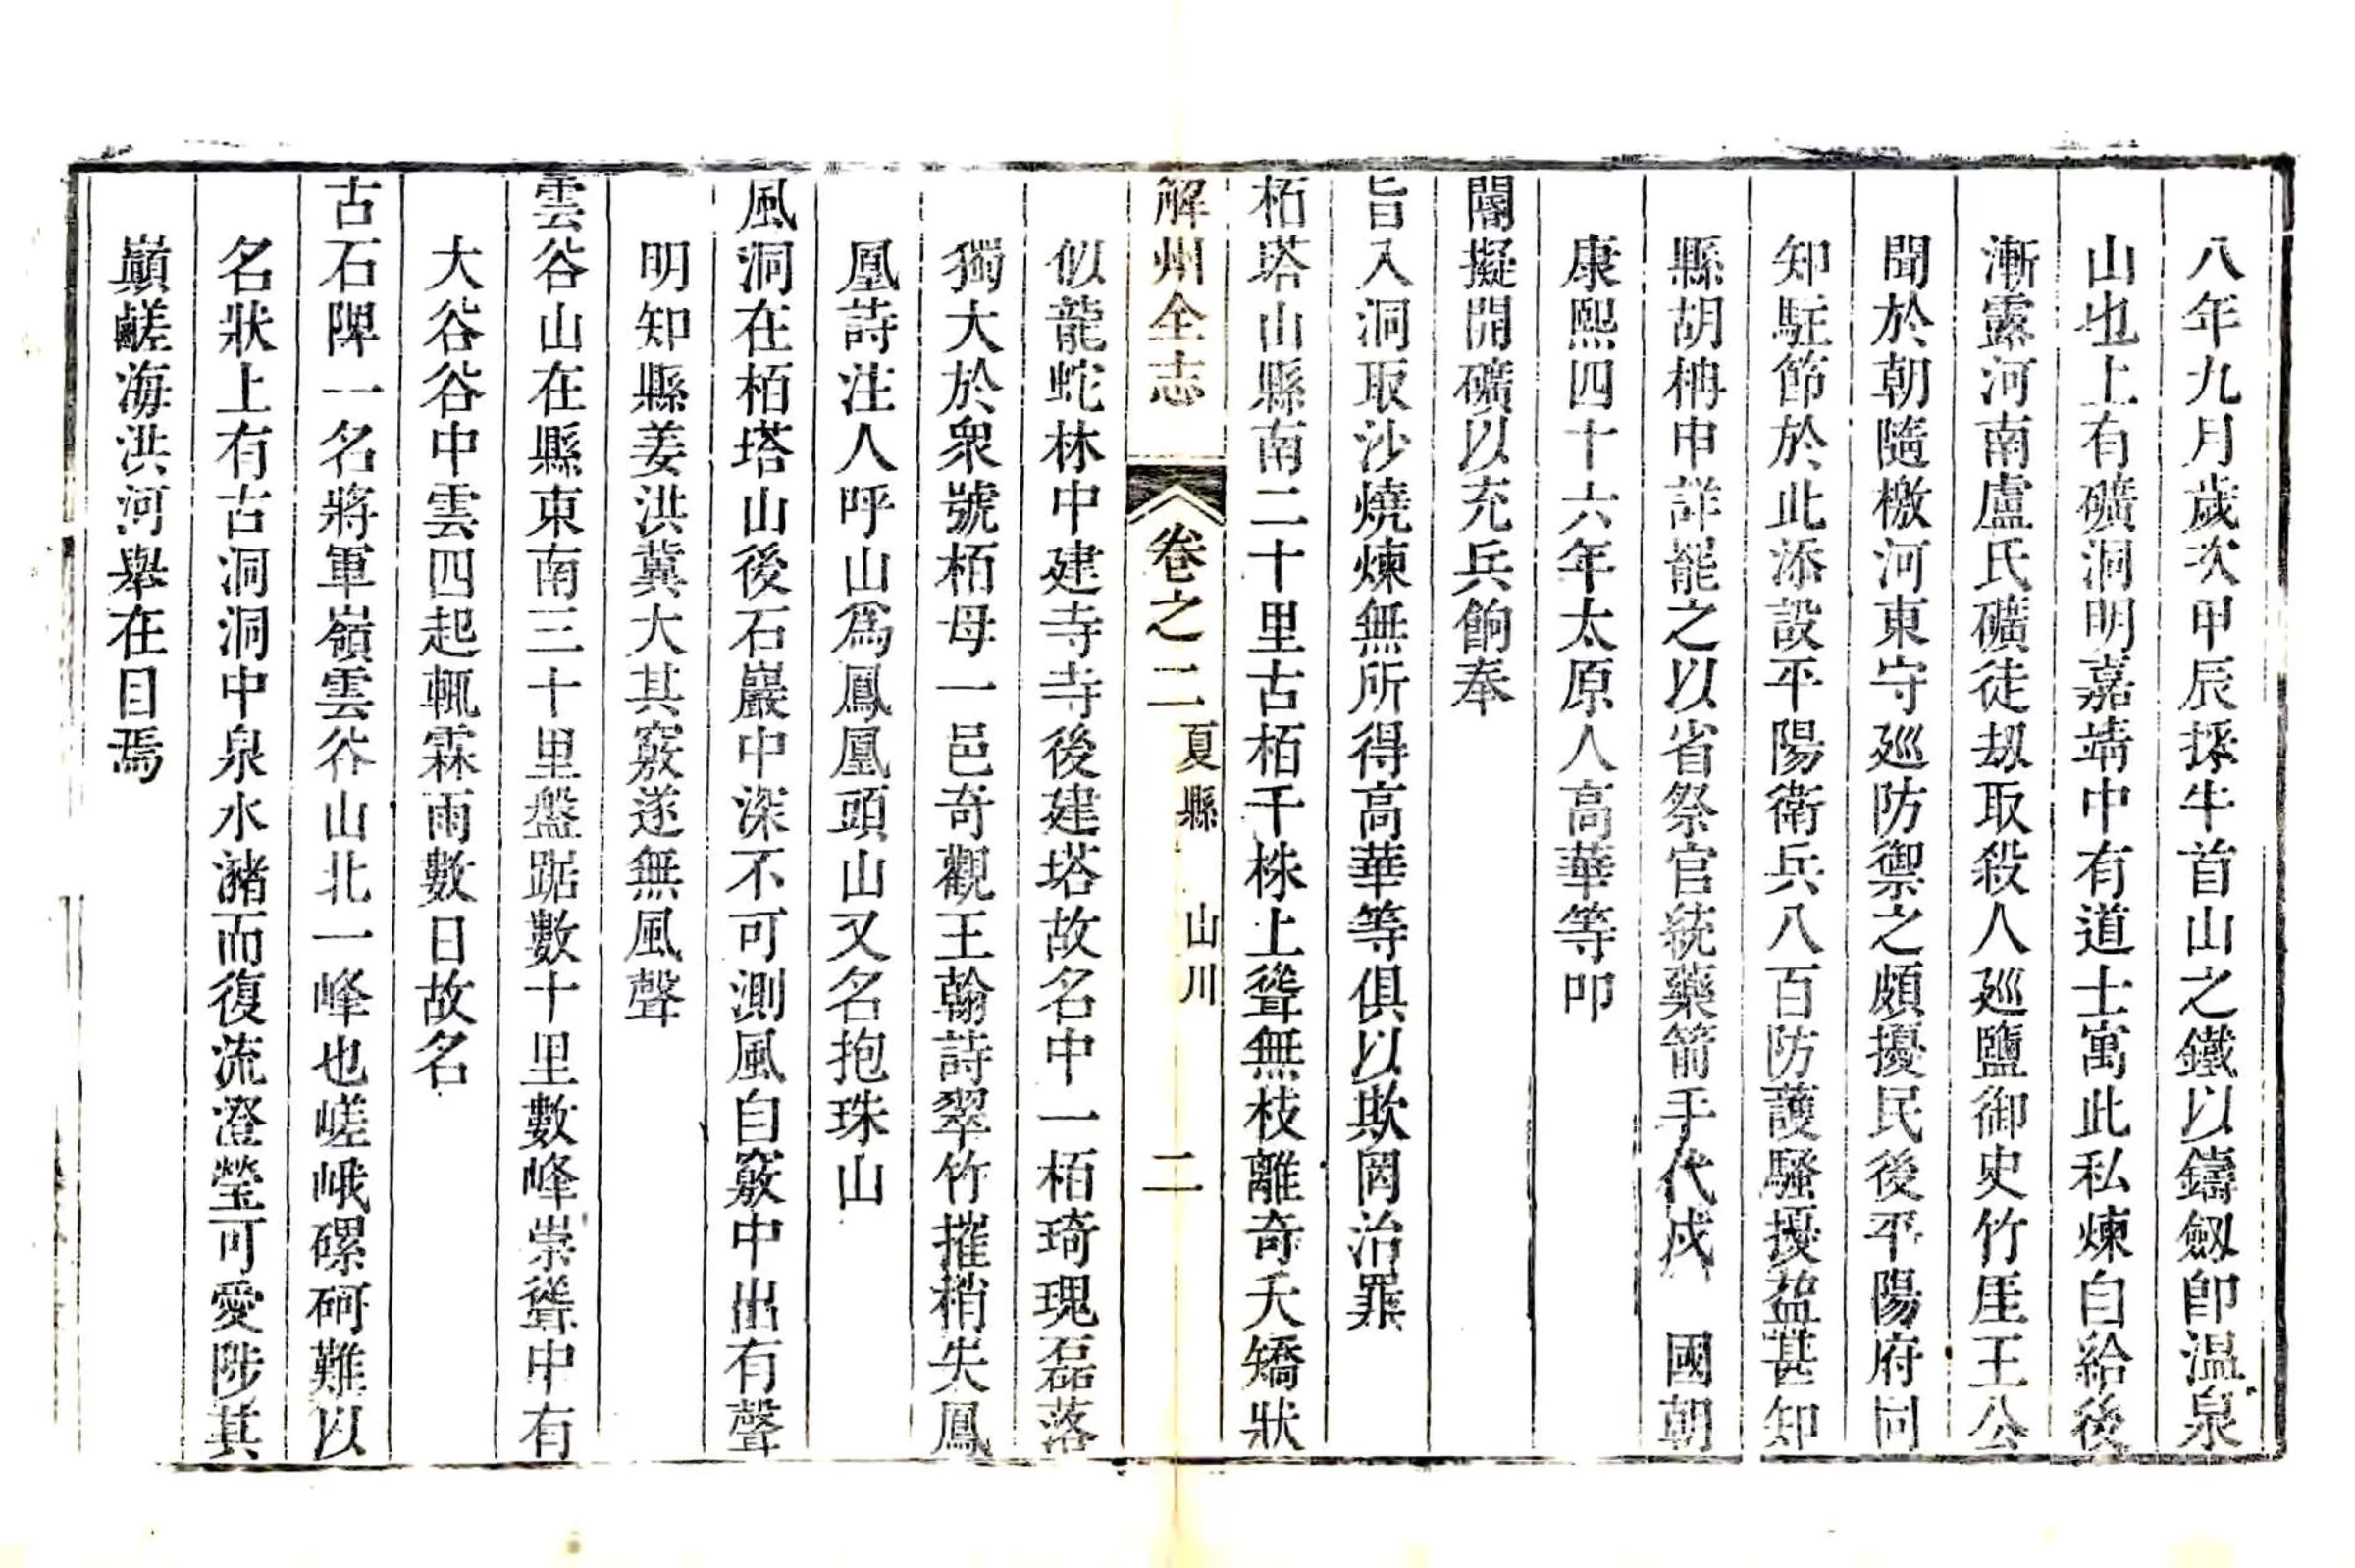 八年九月歲次甲辰採牛首山之鐵以鑄劔卽温泉
山也上有礦洞明嘉靖中有道士寓此私煉自給後
漸露河南盧氏礦徒刼取殺人廵鹽御史竹厓王公
聞於朝隨檄河東守廵防禦之頗擾民後平陽府同
知駐節於此添設平陽衛兵八百防護騷擾益甚知
縣胡柟申詳罷之以省祭官統藥箭手代戍 國朝
康熙四十六年太原人高華等叩
閽擬開礦以充兵餉奉
旨入洞取沙燒煉無所得高華等俱以欺罔治罪
栢塔山縣南二十里古栢千株上聳無枝離奇夭矯狀
解州全志 卷之二 夏縣 山川 二
似龍蛇林中建寺寺後建塔故名中一栢琦瑰磊落
獨大於衆號栢母一邑奇觀王翰詩翠竹摧梢失鳳
凰詩注人呼山爲鳳凰頭山又名抱珠山
風洞在栢塔山後石巖中深不可測風自竅中出有聲
明知縣姜洪冀大其竅遂無風聲
雲谷山在縣東南三十里盤踞數十里數峰崇聳中有
大谷谷中雲四起輒霖雨數日故名
古石陴一名將軍嶺雲谷山北一峰也嵯峨磥砢難以
名狀上有古洞洞中泉水瀦而復流澄瑩可愛陟其
巔鹺海洪河舉在目焉